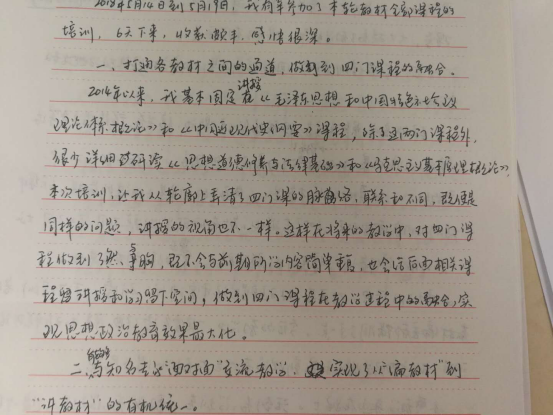 2018年5月14日到5月19日,我有幸参加了本轮教材全部课程的
培训,6天下来,收获颇丰,感悟很深。
一、打通各教材之间的通道,做到四门课程的融合。
2014年以来,我基本固定在讲授《毛泽东思想和中国特色社会主义
理论体系概论》和《中国近现代史纲要》课程,除了这两门课程外,
很少详细研读《思想道德修养与法律基础》和《马克思主义基本原理概论》,
本次培训,让我从轮廓上弄清了四门课的脉络,联系和不同,既使是
同样的问题,讲授的视角也不一样。这样在将来的教学中,对四门课
程做到了然于胸,既不会与前期所学内容简单重复,也会给后面相关课
程留讲授和学习留下空间,做到四门课程在教学过程中的融合,实
现思想政治教育效果最大化。
二、与知名专家面对面"交流教学",实现了从"编教材"到
"讲教材"的有机统一。